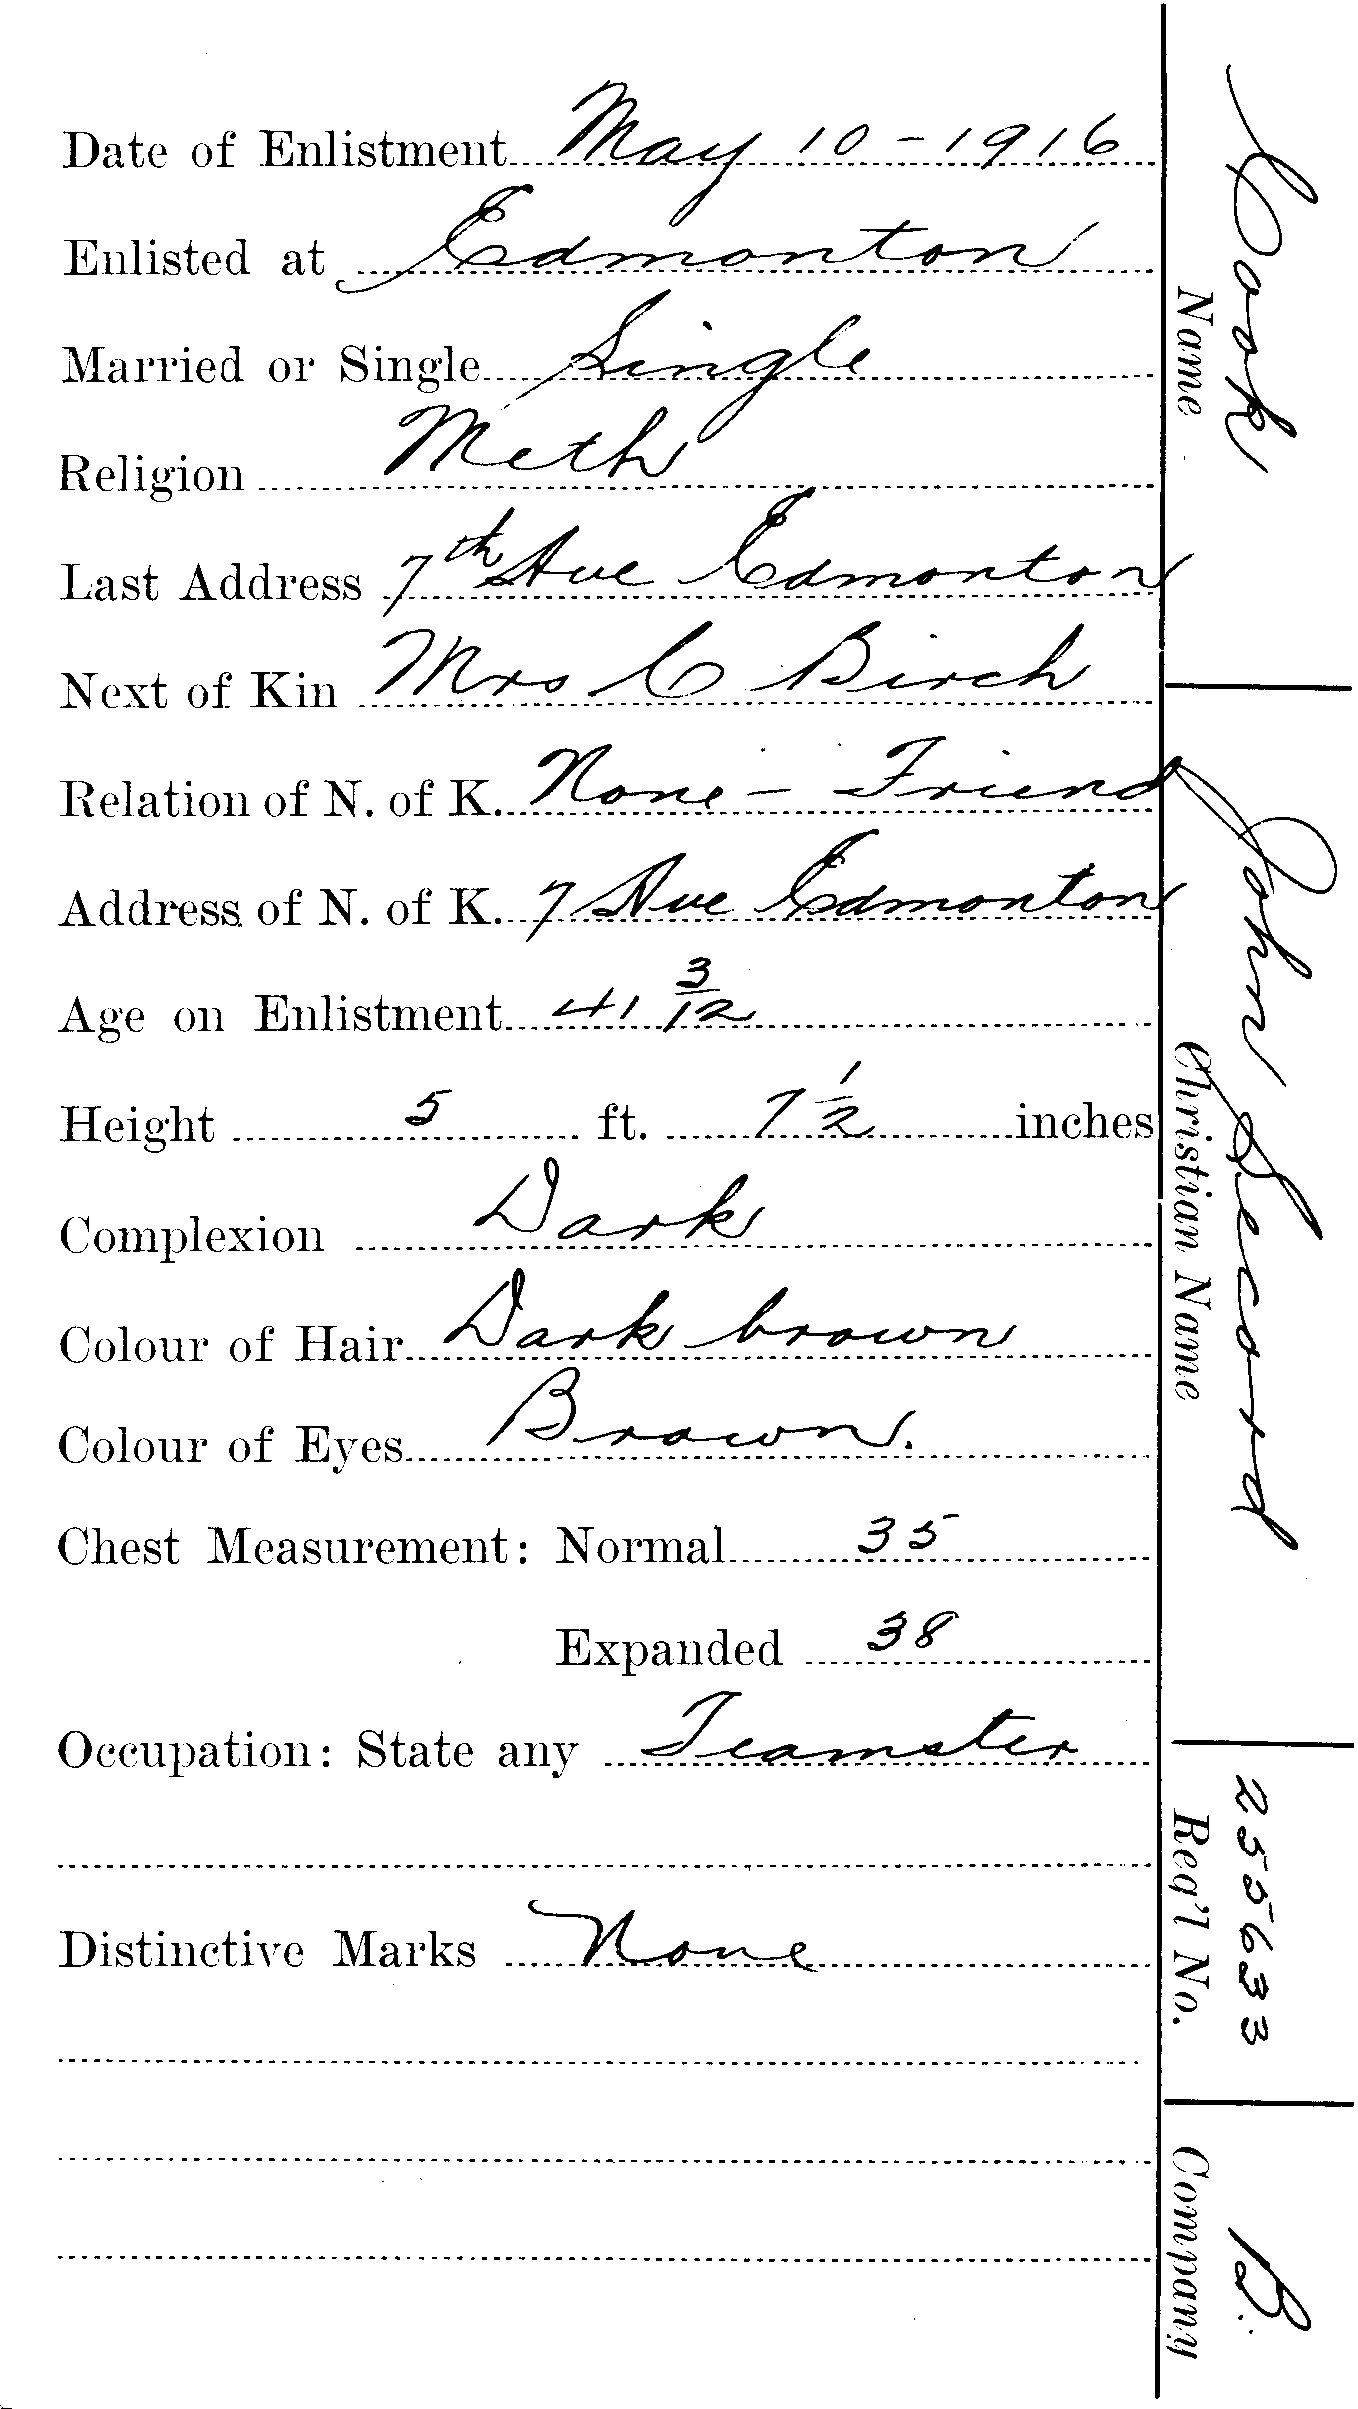 Date of Enlistment May 10 - 1916
Enlisted at Edmonton
Married or Single Single
Religion Meth
Last Address 7th Ave Edmonton
Next of Kin Mrs C Birch
Relation of N. of K. None - Friend
Address of N. of K. 7 Ave Edmonton
Age on Enlistment 41 3/12
Height 5 ft. 7 1/2 inches
Complexion Dark
Colour of Hair Dark brown
Colour of Eyes Brown.
Chest Measurement: Normal 35
Expanded 38
Occupation: State any Teamster
Distinctive Marks None
Cook
Name
John Secord
Christian Name
255633
Reg'l No.
B.
Company